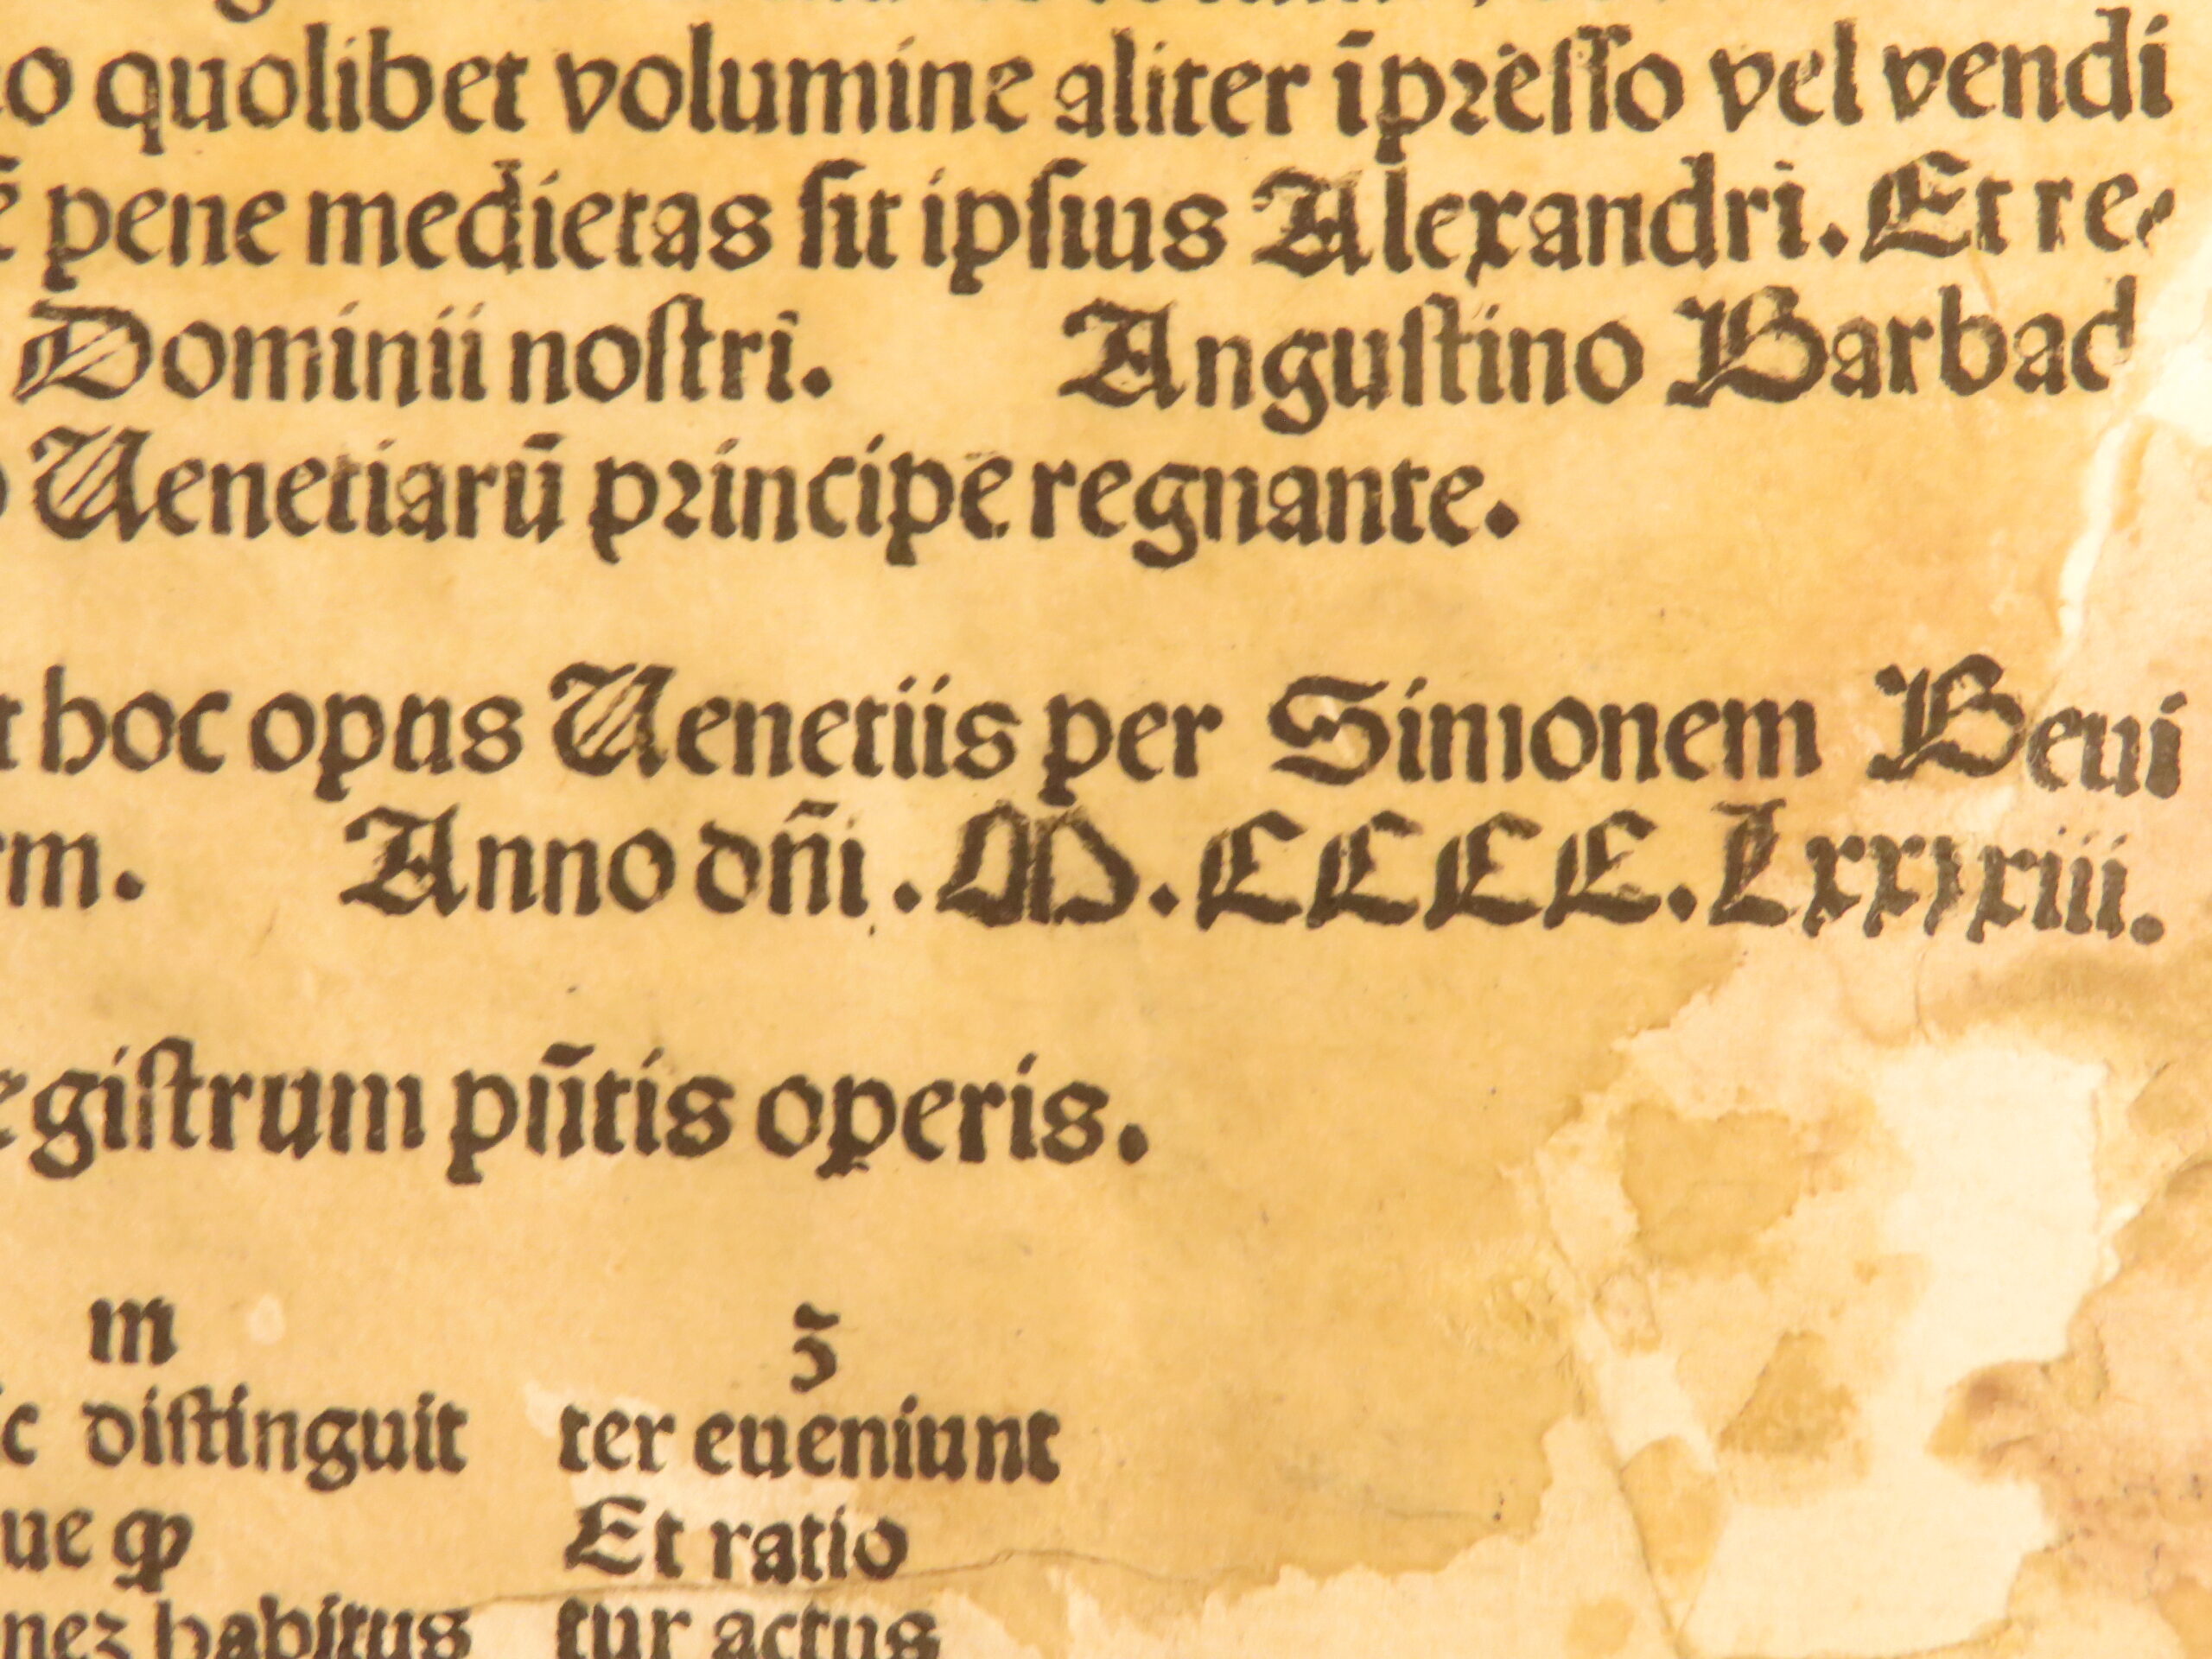 o quolibet volumine aliter īpꝛeſſo vel vendi
pene medietas ſit ipſius Alexandri. Et re⸗
Dominii noſtri. Anguſtino Barbad
Uenetiarū pꝛincipe regnante.
hoc opus Uenetiis per Simonem Beui
m. Anno dñi .M.CCCC.Lxxxxiii.
egiſtrum pñtis operis.
m ꝫ̄
c diſtinguit ter eueniunt
ue ꝙ Et ratio
nez habitus tur actus